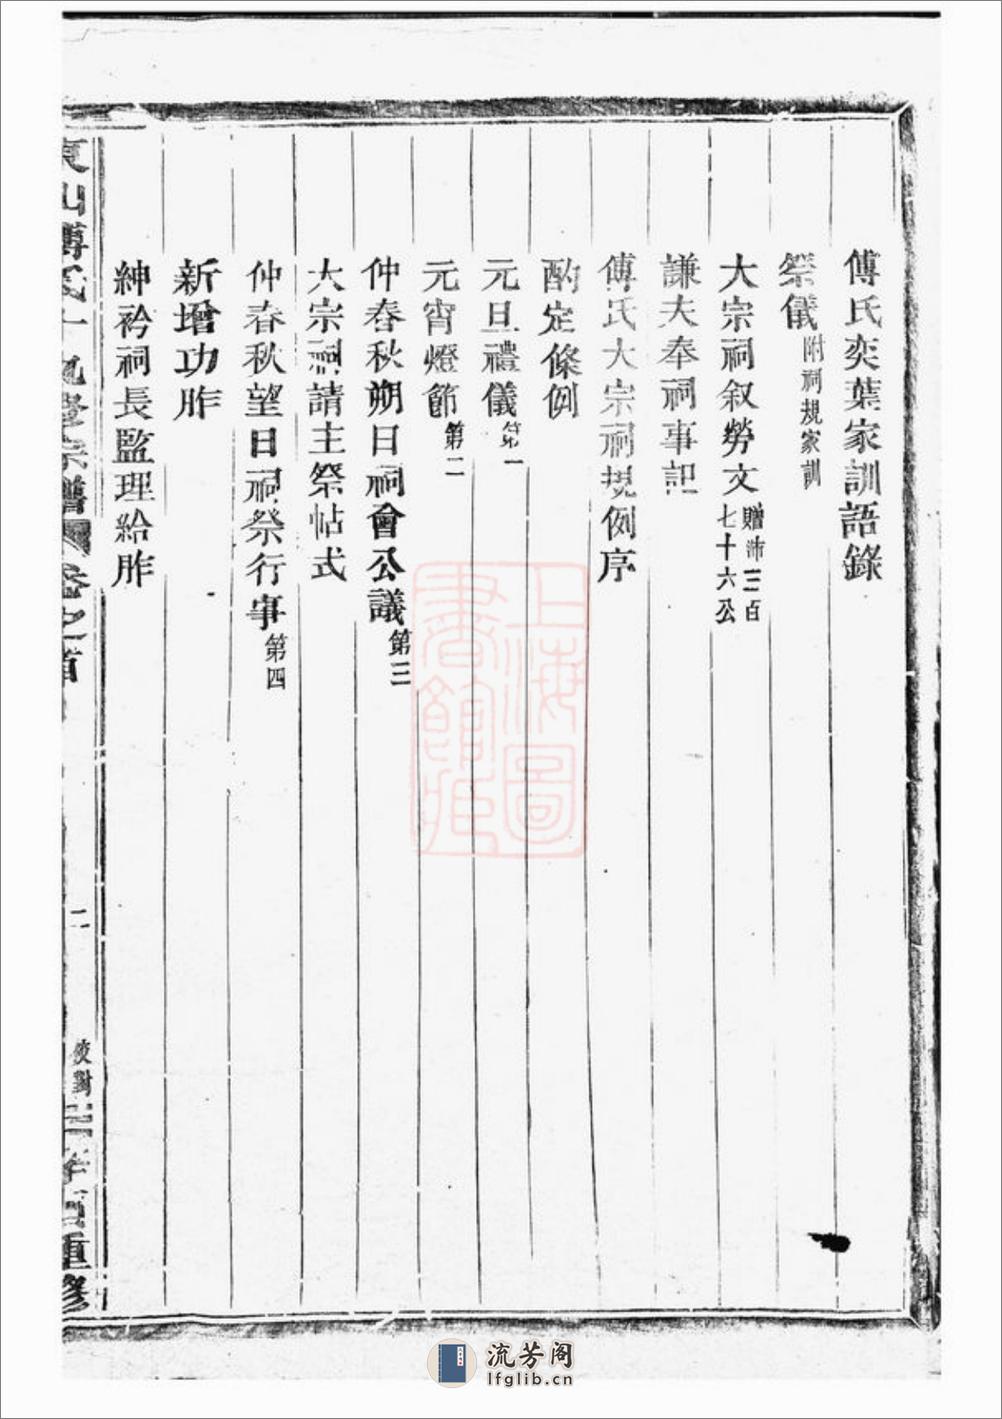 傅氏奕葉家訓語錄
祭儀附祠規家訓
大宗祠叙勞文贈沛三百七十六公
謙夫奉祠事記
傅氏大宗祠規例序
酌定條例
元旦禮儀第一
元宵燈節第二
仲春秋朔日祠會公議第三
大宗祠請主祭帖式
仲春秋望日祠祭行事第四
新增功胙
紳衿祠長監理給胙
東山傅氏十九修宗譜 卷之首
二
校對
辛酉重修
上海圖書館藏
流芳阁
lfglib.cn